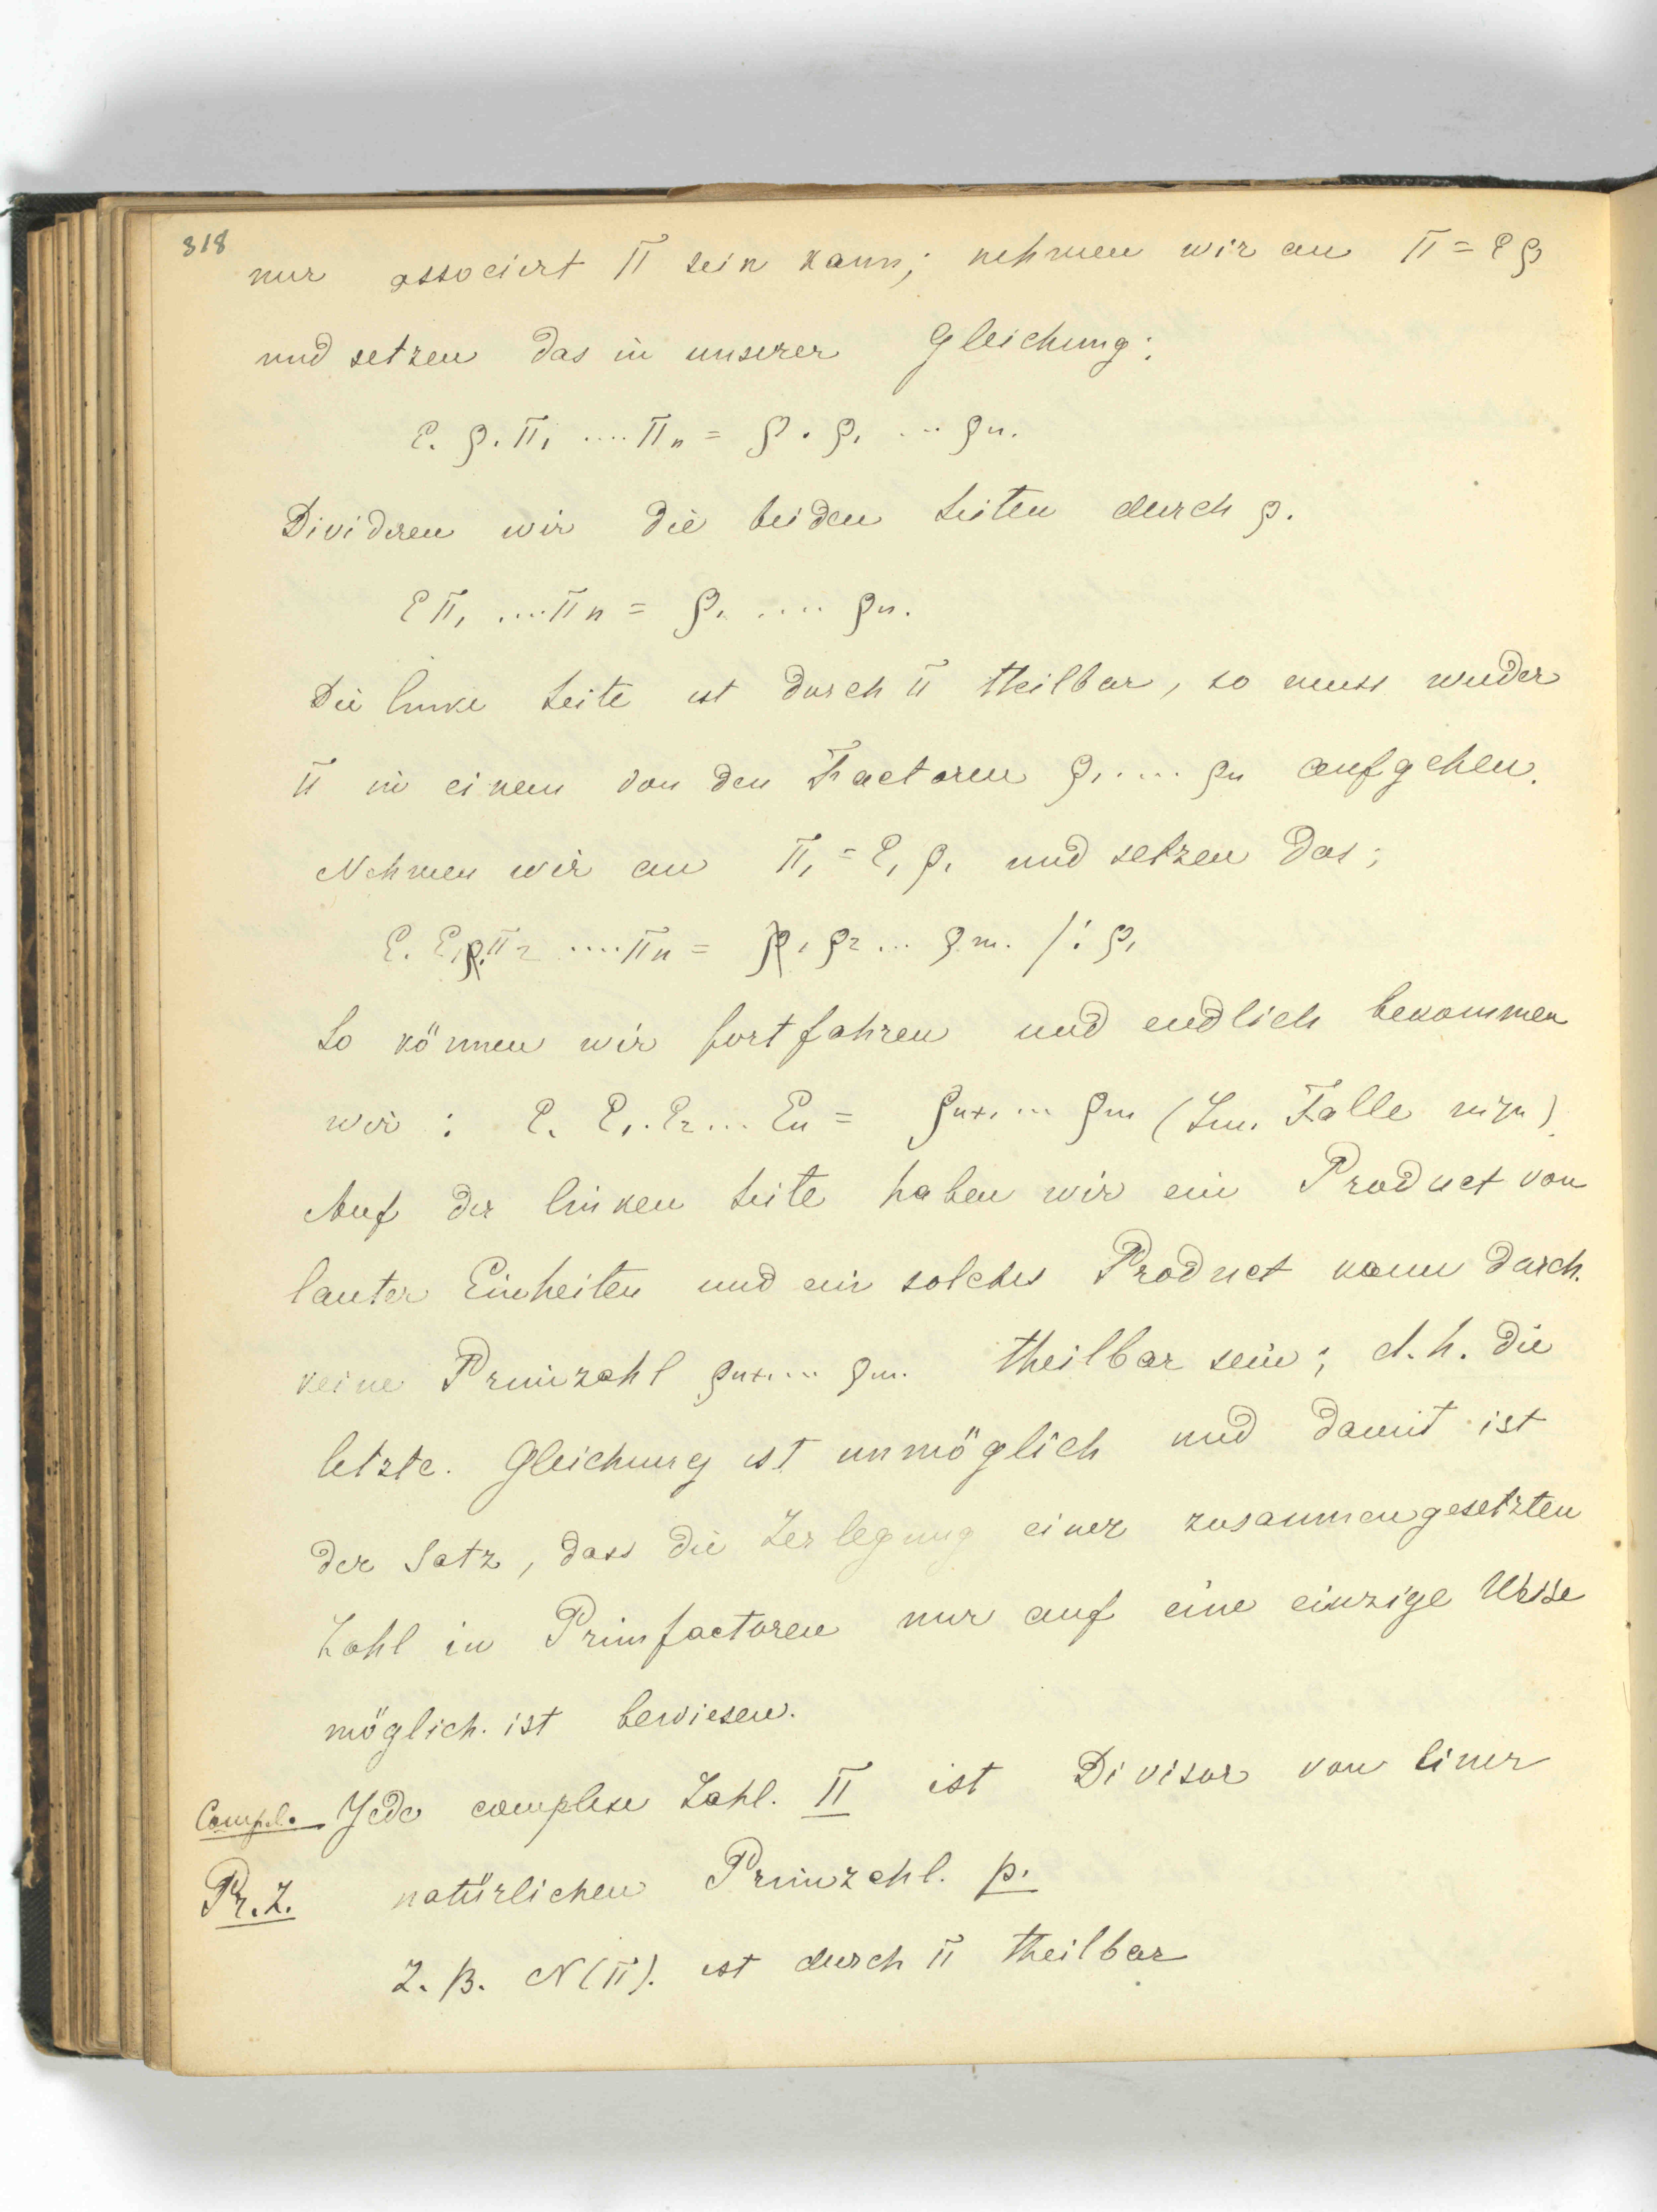 318
nur associirt π sein kann; nehmen wir an π = ερ
und setzen das in unserer Gleichung:
ε. ρ. π₁ .... πₙ = ρ . ρ₁ ... ρₙ.
Dividiren wir die beiden Seiten durch ρ.
επ₁ .... πₙ = ρ₁ .... ρₙ.
Die linke Seite ist durch π theilbar, so muss wieder
π in einem von den Factoren ρ₁ .... ρₙ aufgehen.
Nehmen wir an π₁ = ε₁ ρ₁ und setzen das;
ε. ε₁ρ₁π₂ .... πₙ = ρ₁ ρ₂ ... ρₘ. /: ρ₁
So können wir fortfahren und endlich bekommen
wir : ε. ε₁. ε₂ ... εₙ = ρₙ₊₁ ... ρₘ (Im. Falle m>n)
Auf der linken Seite haben wir ein Product von
lauter Einheiten und ein solches Product kann durch
keine Primzahl ρₙ₊₁ ... ρₘ. theilbar sein; d.h. die
letzte. Gleichung ist unmöglich und damit ist
der Satz, dass die Zerlegung einer zusammengesetzten
Zahl in Primfactoren nur auf eine einzige Weise
möglich. ist bewiesen.
Compl. Jede complexe Zahl. π ist Divisor von einer
Pr.Z. natürlichen Primzahl. p.
Z. B. N(π). ist durch π theilbar